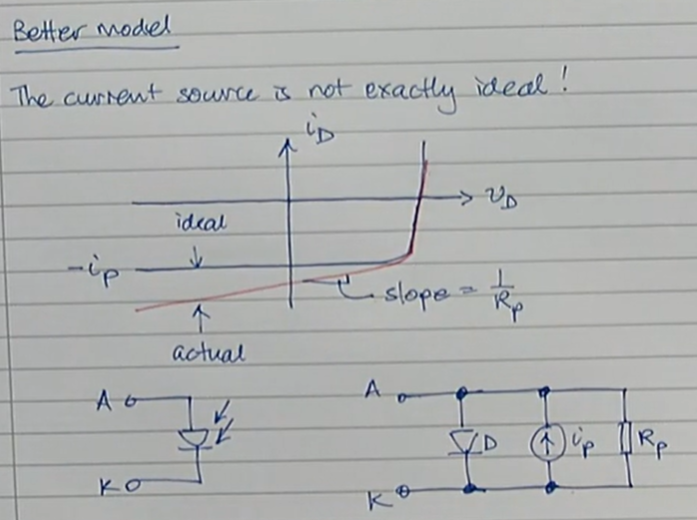 Better model
The current source is not exactly ideal!
i_D
v_D
ideal
-i_p
slope = 1/R_p
actual
A
K
A
D
i_p
R_p
K